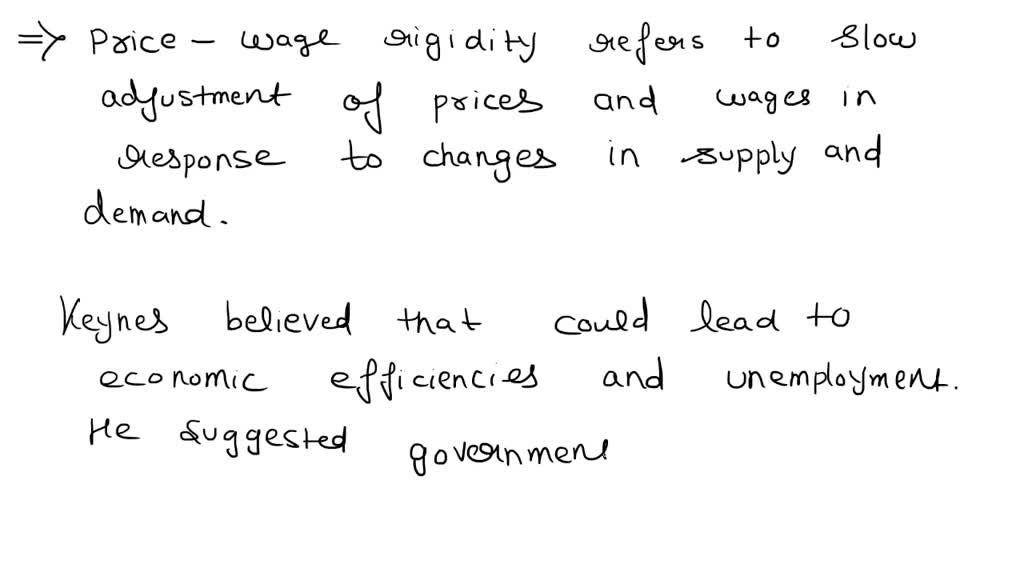 ⇒ Price - wage rigidity refers to slow
adjustment of prices and wages in
response to changes in supply and
demand.
Keynes believed that could lead to
economic efficiencies and unemployment.
He suggested governmen